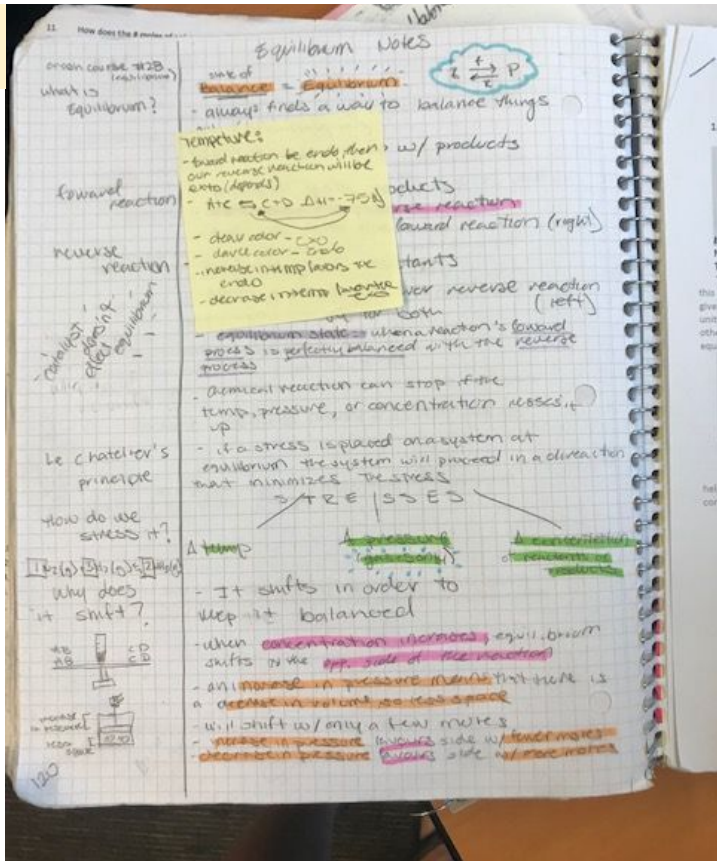 11. How does the # moles of
Equilibrium Notes
crash course #28
(equilibrium)
what is
Equilibrium?
state of
balance = Equilibrium
P
- always finds a way to balance things
w/ products
Tempeture:
- foward reaction be endo, then
our reverse reaction will be
exto (depends)
- A+B ⇌ C+D ΔH=-75
color - exo
color - endo
- increase in temp favors the
endo
- decrase in temp
foward
reaction
reaction
foward reaction (right)
reverse
reaction
reverse reaction
(left)
for both
catalyst
doesn't
effect
equilibrium
- equilibrium state - when a reaction's foward
process is perfectly balanced with the reverse
process
- chemical reaction can stop if the
temp, pressure, or concentration messes it
up
Le Chatelier's
principle
- if a stress is placed on a system at
equilibrium the system will proceed in a direaction
that minimizes the stress
STRESSES
How do we
stress it?
Δ temp
Δ pressure
Δ concentration
of reactants or
products
why does
it shift?
- It shifts in order to
keep it balanced
AB CD
AB CD
- when concentration increases, equilibrium
shifts to the opp. side of the reaction
- an increase in pressure means that there is
a decrease in volume, so less space
- will shift w/ only a few moles
- increase in pressure favours side w/ fewer moles
- decrease in pressure favours side w/ more moles
120
this
give
unit
othe
equi
hel
con